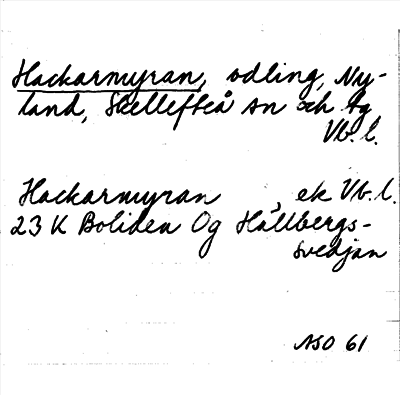 Hackarmyran, odling, Ny-
land, Skellefteå sn och tg
Vb. l.
Hackarmyran , ek Vb. l.
23 K Boliden Og Hällbergs-
svedjan
ASO 61